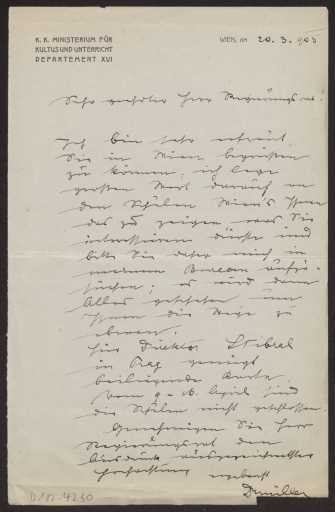 K. K. MINISTERIUM FÜR
KULTUS UND UNTERRICHT
DEPARTEMENT XVI
WIEN, am 20. 3. 1903
Sehr geehrter Herr Regierungsrat.
Ich bin sehr erfreut
Sie in Wien begrüssen
zu können, ich lege
grossen Wert darauf in
den Schulen Wiens Ihnen
das zu zeigen was Sie
interessieren dürfte und
bitte Sie daher mich in
meinem Bureau aufzu-
suchen; es wird dann
Alles geschehen um
Ihnen die Wege zu
ebnen.
Für Direktor Stibral
in Prag genügt
beiliegende Karte
vom 9 - 16. April sind
die Schulen nicht geschlossen.
Genehmigen Sie Herr
Regierungsrat den
Ausdruck ausgezeichnetster
Hochachtung ergebenst